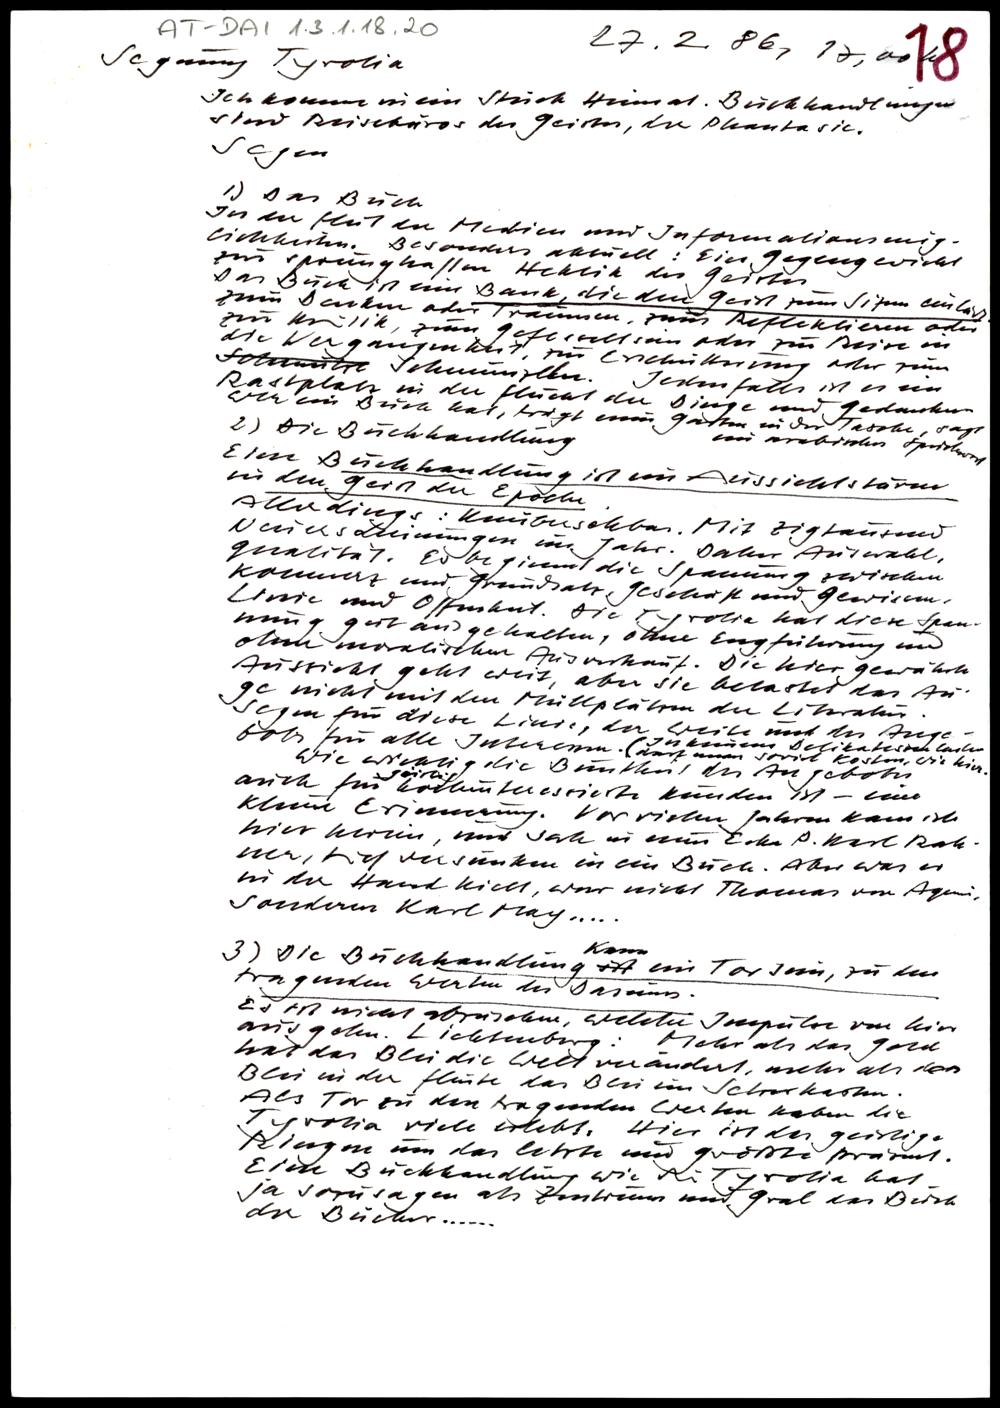 AT-DAI 1.3.1.18.20
27.2.86, 17,00 h
18
Segnung Tyrolia
Ich komme in ein Stück Heimat. Buchhandlungen
sind Reisebüros des Geistes, der Phantasie.
Segen
1) Das Buch
In der Flut der Medien und Informationsmög-
lichkeiten. Besonders aktuell: Ein Gegengewicht
zur sprunghaften Hektik des Geistes
Das Buch ist eine Bank, die den Geist zum Sitzen einlädt
zum Denken oder Träumen, zum Reflektieren oder
zur Kritik, zum Gefesseltsein oder zur Reise in
die Vergangenheit, zur Erschütterung oder zum
Schmunzeln. Jedenfalls ist es ein
Rastplatz in der Flucht der Dinge und Gedanken
Wer ein Buch hat, trägt einen Garten in der Tasche, sagt
ein arabisches Sprichwort
2) Die Buchhandlung
Eine Buchhandlung ist ein Aussichtsturm
in den Geist der Epoche
Allerdings: Unübersehbar. Mit zigtausend
Neuerscheinungen im Jahr. Daher Auswahl,
Qualität. Es beginnt die Spannung zwischen
Kommerz und Grundsatz, Geschäft und Gewissen,
Linie und Offenheit. Die Tyrolia hat diese Span-
nung gut ausgehalten, ohne Engführung und
ohne moralischen Ausverkauf. Die hier gewährte
Aussicht geht weit, aber sie belastet das Au-
ge nicht mit den Müllplätzen der Literatur.
Segen für diese Linie, der Weite und des Ange-
bots für alle Interessen. (In keinem Delikatessenladen
darf man soviel kosten, wie hier.
Wie wichtig die Buntheit des Angebotes
auch für geistig hochinteressierte Kunden ist – eine
kleine Erinnerung. Vor vielen Jahren kam ich
hier herein, und sah in einer Ecke P. Karl Rah-
ner, tief versunken in ein Buch. Aber was er
in der Hand hielt, war nicht Thomas von Aquin,
sondern Karl May.....
3) Die Buchhandlung ist kann ein Tor sein, zu den
tragenden Werten des Daseins.
Es ist nicht abzusehen, welche Impulse von hier
ausgehen. Lichtenberg: Mehr als das Gold
hat das Blei die Welt verändert, mehr als das
Blei in der Flinte das Blei im Setzerkasten.
Als Tor zu den tragenden Werten haben die
Tyrolia viele erlebt. Hier ist das geistige
Ringen um das Letzte und Größte präsent.
Eine Buchhandlung wie die Tyrolia hat
ja sozusagen als Zentrum und Gral das Buch
der Bücher......